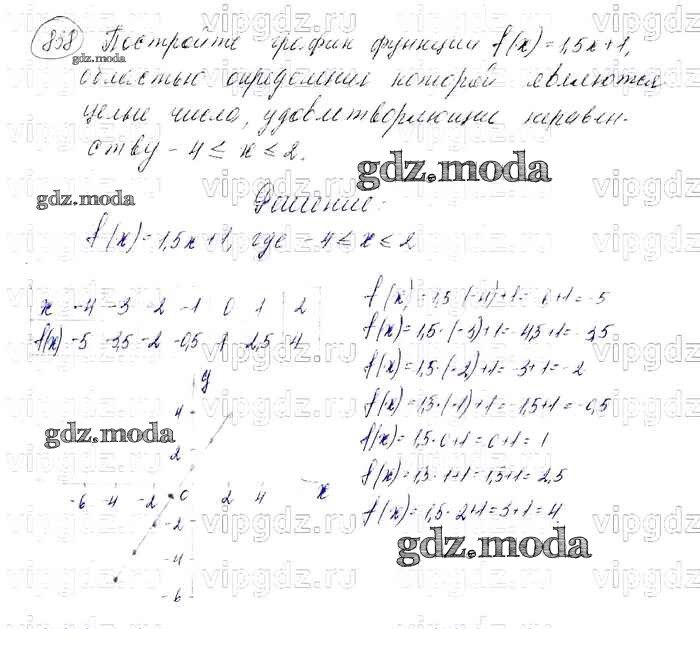 858 Постройте график функции f(x)=1,5x+1,
областью определения которой являются
целые числа, удовлетворяющие неравен-
ству -4 ≤ x ≤ 2.
Решение:
f(x)=1,5x+1, где -4 ≤ x ≤ 2
x -4 -3 -2 -1 0 1 2
f(x) -5 -3,5 -2 -0,5 1 2,5 4
f(x)=1,5·(-4)+1=-6+1=-5
f(x)=1,5·(-3)+1=-4,5+1=-3,5
f(x)=1,5·(-2)+1=-3+1=-2
f(x)=1,5·(-1)+1=-1,5+1=-0,5
f(x)=1,5·0+1=0+1=1
f(x)=1,5·1+1=1,5+1=2,5
f(x)=1,5·2+1=3+1=4
y
4
2
-6 -4 -2 0 2 4 x
-2
-4
-6
gdz.moda
gdz.moda
gdz.moda
gdz.moda
gdz.moda
vipgdz.ru